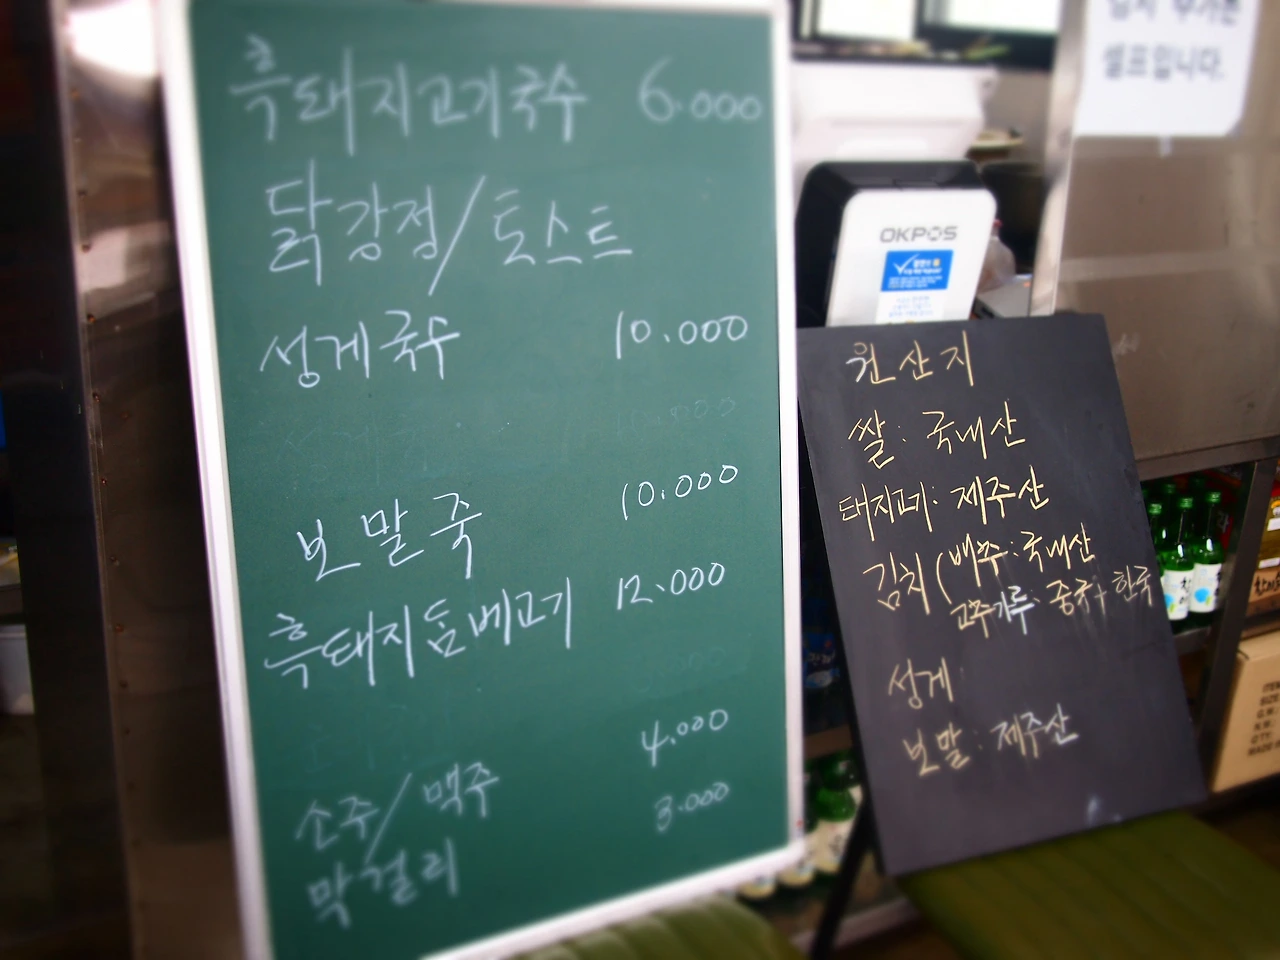 흑돼지고기국수 6.000
닭강정/토스트
성게국수 10.000
보말죽 10.000
흑돼지돔베고기 12.000
소주/맥주 4.000
막걸리 3.000
셀프입니다.
OKPOS
원산지
쌀: 국내산
돼지고기: 제주산
김치(배추: 국내산
고추가루: 중국+한국
성게
보말: 제주산